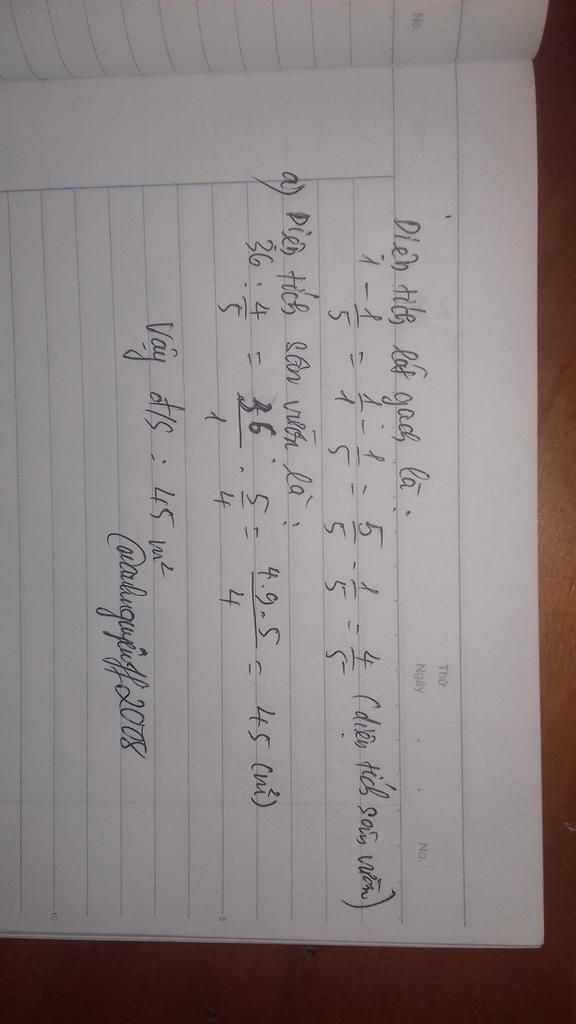 No.
Thứ
Ngày
No.
Diện tích lát gạch là:
1 - 1/5 = 1/1 - 1/5 = 5/5 - 1/5 = 4/5 (diện tích sân vườn)
a) Diện tích sân vườn là:
36 : 4/5 = 36/1 . 5/4 = 4.9.5/4 = 45 (m²)
5
Vậy đ/S: 45 m²
10